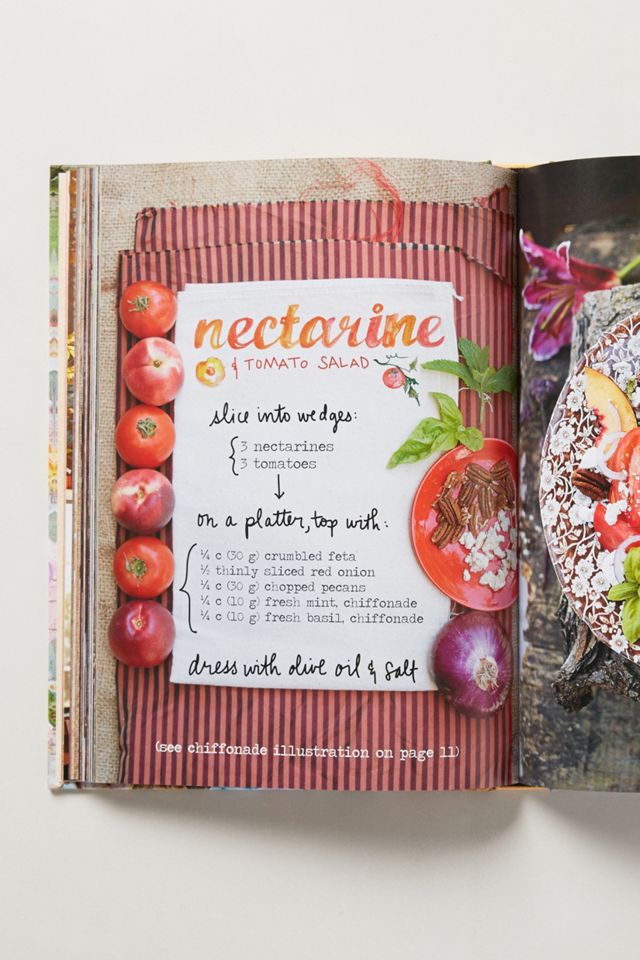 nectarine
& TOMATO SALAD
slice into wedges:
3 nectarines
3 tomatoes
on a platter, top with:
¼ c (30 g) crumbled feta
½ thinly sliced red onion
¼ c (30 g) chopped pecans
¼ c (10 g) fresh mint, chiffonade
¼ c (10 g) fresh basil, chiffonade
dress with olive oil & salt
(see chiffonade illustration on page 11)